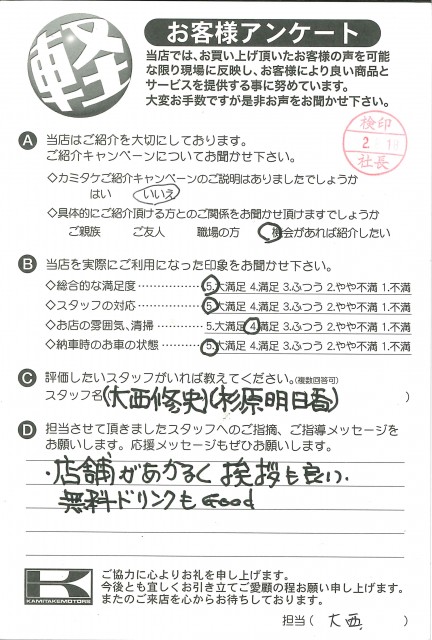 軽
お客様アンケート
当店では、お買い上げ頂いたお客様の声を可能
な限り現場に反映し、お客様により良い商品と
サービスを提供する事に努めています。
大変お手数ですが是非お声をお聞かせ下さい。
検印
2
社長
A 当店はご紹介を大切にしております。
ご紹介キャンペーンについてお聞かせ下さい。
◇カミタケご紹介キャンペーンのご説明はありましたでしょうか
はい いいえ
◇具体的にご紹介頂ける方とのご関係をお聞かせ頂けますでしょうか
ご親族 ご友人 職場の方 機会があれば紹介したい
B 当店を実際にご利用になった印象をお聞かせ下さい。
◇総合的な満足度 ………… 5.大満足 4.満足 3.ふつう 2.やや不満 1.不満
◇スタッフの対応 ………… 5.大満足 4.満足 3.ふつう 2.やや不満 1.不満
◇お店の雰囲気、清掃 ……… 5.大満足 4.満足 3.ふつう 2.やや不満 1.不満
◇納車時のお車の状態 ……… 5.大満足 4.満足 3.ふつう 2.やや不満 1.不満
C 評価したいスタッフがいれば教えてください。(複数回答可)
スタッフ名(大西修史)(杉原明日香) )
D 担当させて頂きましたスタッフへのご指摘、ご指導メッセージを
お願いします。応援メッセージもぜひお願いします。
・店舗があかるく挨拶も良い.
無料ドリンクもGood
K
KAMITAKEMOTORS
ご協力に心よりお礼を申し上げます。
今後とも宜しくお引き立てご愛顧の程お願い申し上げます。
またのご来店を心からお待ちしております。
担当( 大西 )